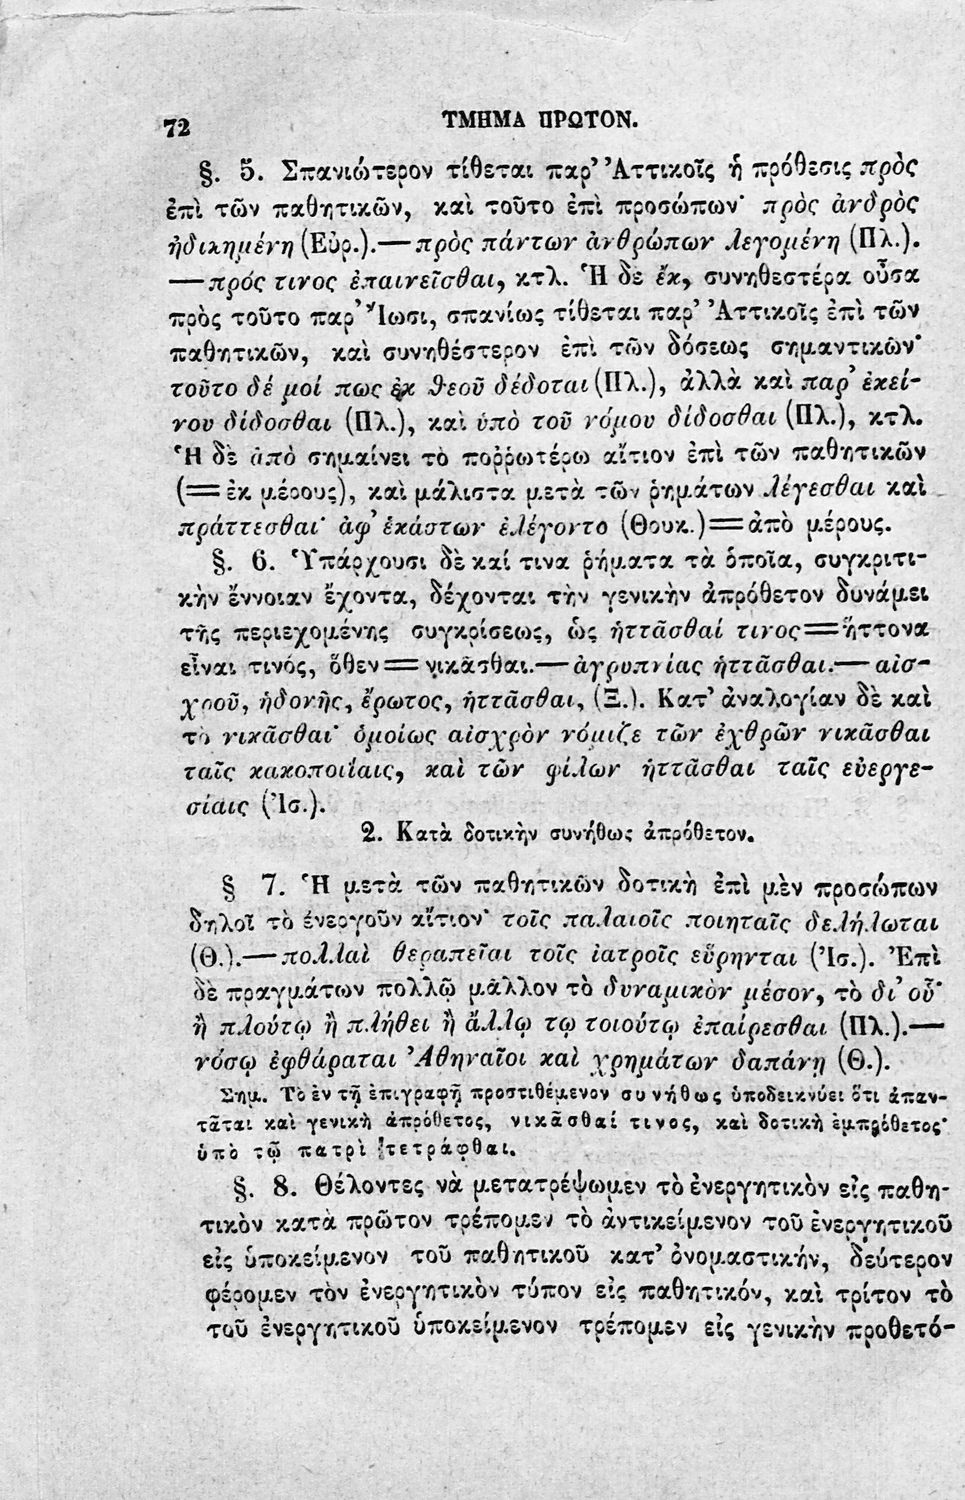 72
ΤΜΗΜΑ ΠΡΩΤΟΝ.
§. 5. Σπανιώτερον τίθεται παρ' Ἀττικοῖς ἡ πρόθεσις πρὸς
ἐπὶ τῶν παθητικῶν, καὶ τοῦτο ἐπὶ προσώπων· πρὸς ἀνδρὸς
ἠδικημένη (Εὐρ.).—πρὸς πάντων ἀνθρώπων λεγομένη (Πλ.).
—πρός τινος ἐπαινεῖσθαι, κτλ. Ἡ δὲ ἔκ, συνηθεστέρα οὖσα
πρὸς τοῦτο παρ' Ἴωσι, σπανίως τίθεται παρ' Ἀττικοῖς ἐπὶ τῶν
παθητικῶν, καὶ συνηθέστερον ἐπὶ τῶν δόσεως σημαντικῶν·
τοῦτο δέ μοί πως ἐκ θεοῦ δέδοται (Πλ.), ἀλλὰ καὶ παρ' ἐκεί-
νου δίδοσθαι (Πλ.), καὶ ὑπὸ τοῦ νόμου δίδοσθαι (Πλ.), κτλ.
Ἡ δὲ ἀπὸ σημαίνει τὸ ποῤῥωτέρω αἴτιον ἐπὶ τῶν παθητικῶν
(=ἐκ μέρους), καὶ μάλιστα μετὰ τῶν ῥημάτων λέγεσθαι καὶ
πράττεσθαι· ἀφ' ἑκάστων ἐλέγοντο (Θουκ.)=ἀπὸ μέρους.
§. 6. Ὑπάρχουσι δὲ καί τινα ῥήματα τὰ ὁποῖα, συγκριτι-
κὴν ἔννοιαν ἔχοντα, δέχονται τὴν γενικὴν ἀπρόθετον δυνάμει
τῆς περιεχομένης συγκρίσεως, ὡς ἡττᾶσθαί τινος=ἥττονα
εἶναι τινός, ὅθεν=νικᾶσθαι.—ἀγρυπνίας ἡττᾶσθαι.—αἰσ-
χροῦ, ἡδονῆς, ἔρωτος, ἡττᾶσθαι, (Ξ.). Κατ' ἀναλογίαν δὲ καὶ
τὸ νικᾶσθαι· ὁμοίως αἰσχρὸν νόμιζε τῶν ἐχθρῶν νικᾶσθαι
ταῖς κακοποιίαις, καὶ τῶν φίλων ἡττᾶσθαι ταῖς εὐεργε-
σίαις (Ἰσ.).
2. Κατὰ δοτικὴν συνήθως ἀπρόθετον.
§ 7. Ἡ μετὰ τῶν παθητικῶν δοτικὴ ἐπὶ μὲν προσώπων
δηλοῖ τὸ ἐνεργοῦν αἴτιον· τοῖς παλαιοῖς ποιηταῖς δεδήλωται
(Θ.).—πολλαὶ θεραπεῖαι τοῖς ἰατροῖς εὕρηνται (Ἰσ.). Ἐπὶ
δὲ πραγμάτων πολλῷ μᾶλλον τὸ δυναμικὸν μέσον, τὸ δι' οὗ·
ἢ πλούτῳ ἢ πλήθει ἢ ἄλλῳ τῳ τοιούτῳ ἐπαίρεσθαι (Πλ.).—
νόσῳ ἐφθάραται Ἀθηναῖοι καὶ χρημάτων δαπάνῃ (Θ.).
Σημ. Τὸ ἐν τῇ ἐπιγραφῇ προστιθέμενον συνήθως ὑποδεικνύει ὅτι ἀπαν-
τᾶται καὶ γενικὴ ἀπρόθετος, νικᾶσθαί τινος, καὶ δοτικὴ ἐμπρόθετος·
ὑπὸ τῷ πατρὶ τετράφθαι.
§. 8. Θέλοντες νὰ μετατρέψωμεν τὸ ἐνεργητικὸν εἰς παθη-
τικὸν κατὰ πρῶτον τρέπομεν τὸ ἀντικείμενον τοῦ ἐνεργητικοῦ
εἰς ὑποκείμενον τοῦ παθητικοῦ κατ' ὀνομαστικήν, δεύτερον
φέρομεν τὸν ἐνεργητικὸν τύπον εἰς παθητικόν, καὶ τρίτον τὸ
τοῦ ἐνεργητικοῦ ὑποκείμενον τρέπομεν εἰς γενικὴν προθετό-